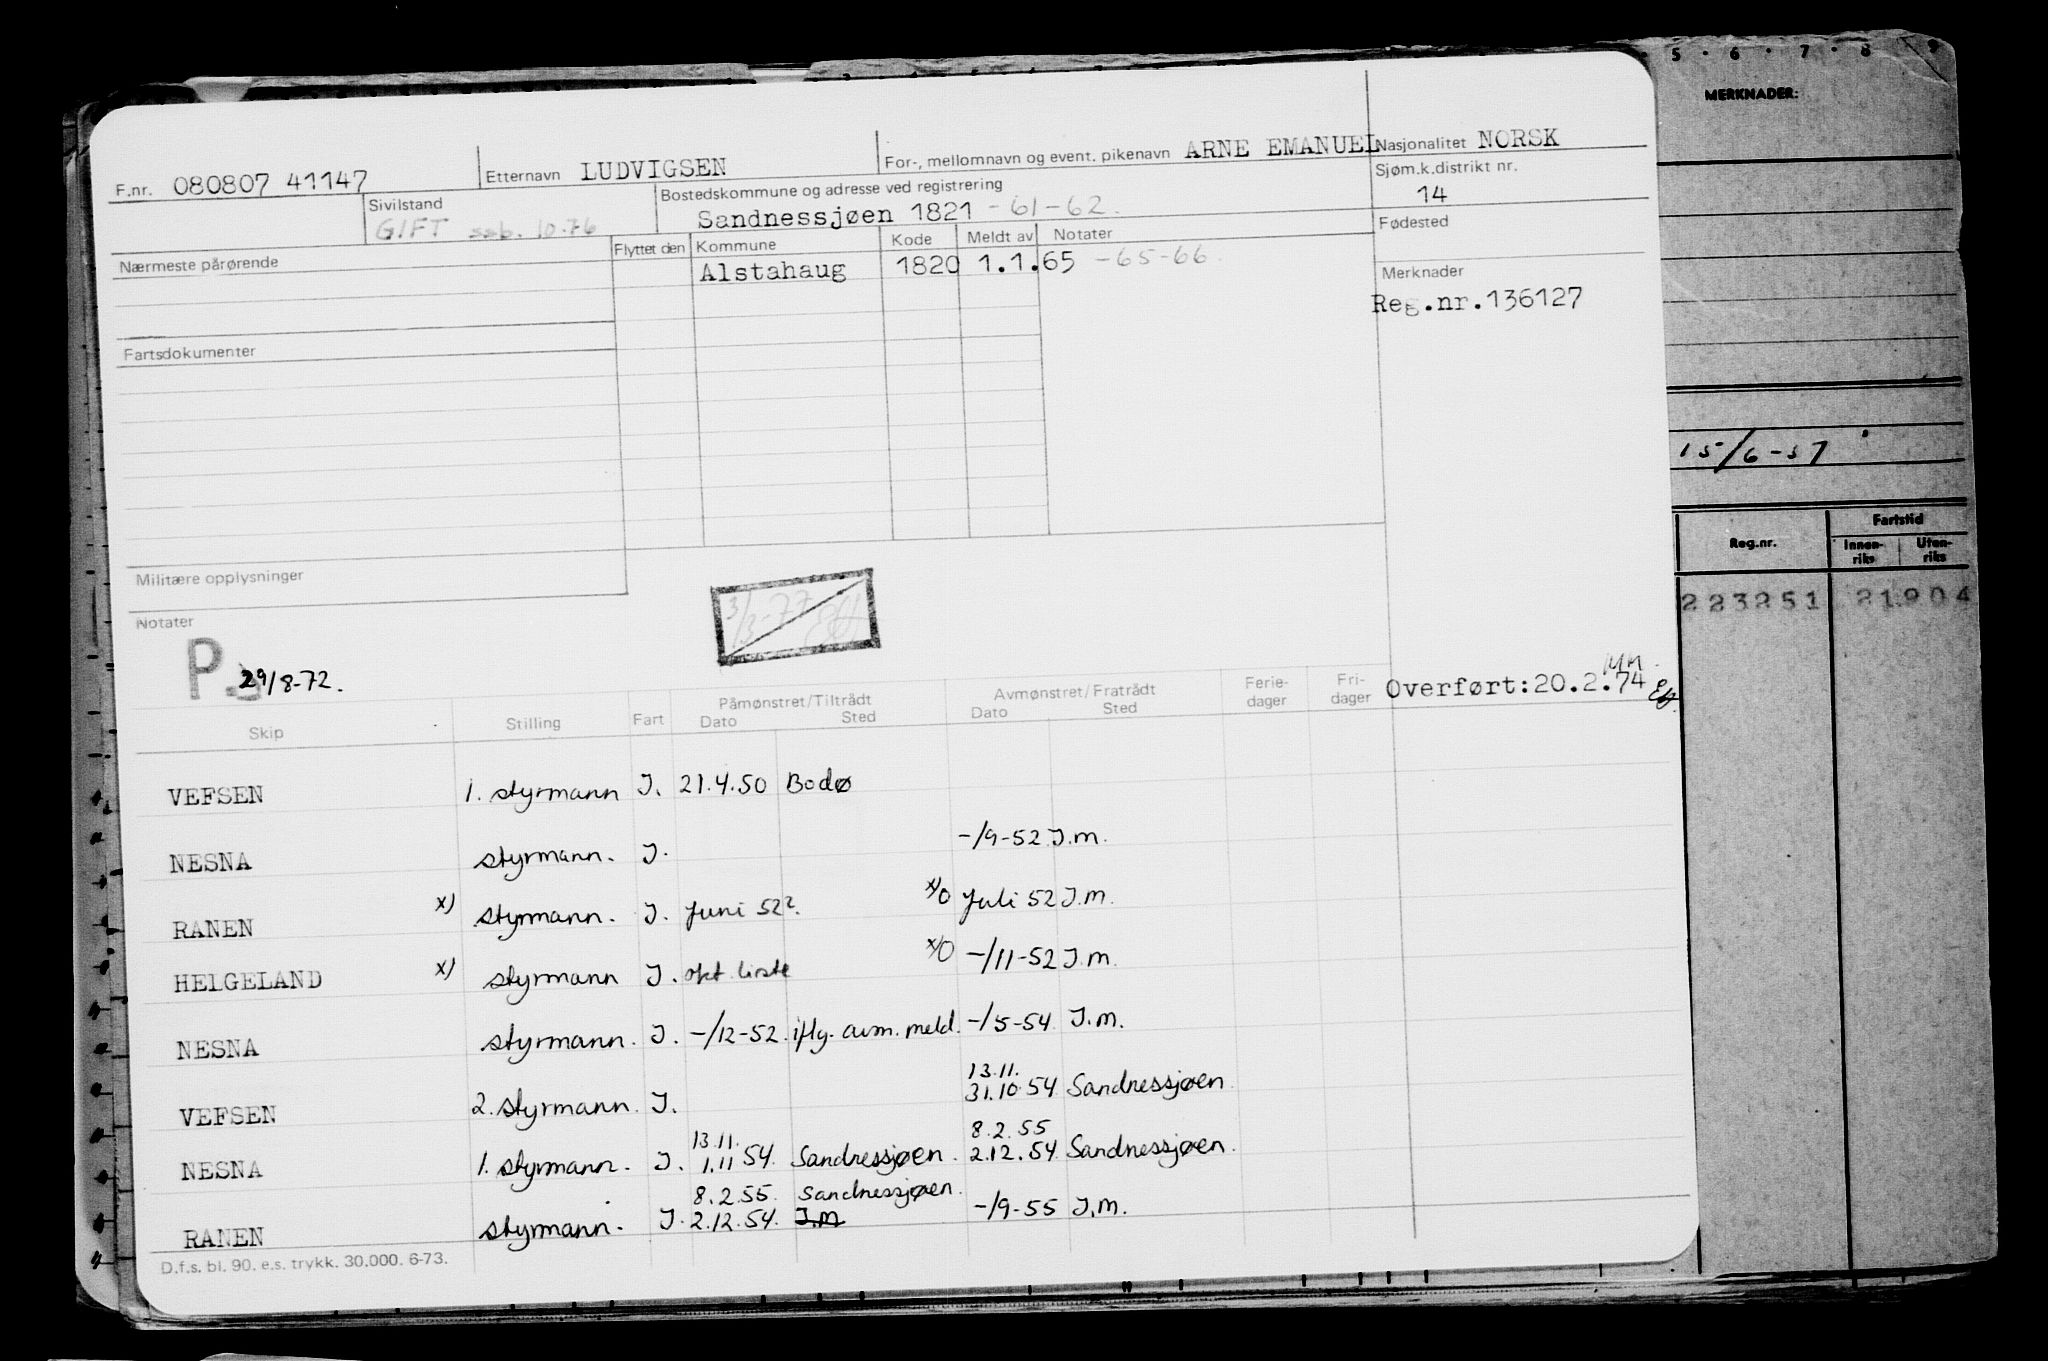 5 · 6 · 7 · 8 · 9
MERKNADER:
F.nr. 080807 41147 Etternavn LUDVIGSEN For-, mellomnavn og event. pikenavn ARNE EMANUEL Nasjonalitet NORSK
Sivilstand Bostedskommune og adresse ved registrering Sjøm.k.distrikt nr.
GIFT 10.76 Sandnessjøen 1821 -61-62. 14
Nærmeste pårørende Flyttet den Kommune Kode Meldt av Notater Fødested
Alstahaug 1820 1.1.65 -65-66. Merknader
Reg.nr.136127
Fartsdokumenter
15/6-57
Militære opplysninger
Reg.nr. Fartstid
Innen-riks Uten-riks
223251 21904
3/3-77
Notater
P. 29/8-72.
Overført:20.2.74
Skip Stilling Fart Påmønstret/Tiltrådt Avmønstret/Fratrådt Ferie-dager Fri-dager
Dato Sted Dato Sted
VEFSEN 1. styrmann J. 21.4.50 Bodø
NESNA styrmann. J. -/9-52 J.m.
RANEN x) styrmann. J. Juni 52?. x)0 Juli 52 J.m.
HELGELAND x) styrmann J. okt. liste x)0 -/11-52 J.m.
NESNA styrmann. J. -/12-52. iflg. avm. meld. -/5-54 J.m.
13.11.
VEFSEN 2. styrmann. J. 31.10.54 Sandnessjøen.
13.11. 8.2.55
NESNA 1. styrmann. J. 1.11 54. Sandnessjøen. 2.12.54 Sandnessjøen.
8.2.55. Sandnessjøen.
RANEN styrmann. J. 2.12.54. J.m -/9-55 J.m.
D.f.s. bl. 90. e.s. trykk. 30.000. 6-73.